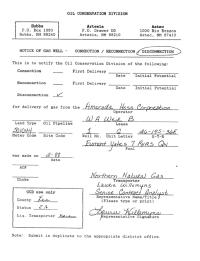 OIL CONSERVATION DIVISION
Hobbs
P.O. Box 1980
Hobbs, NM 88240
Artesia
P.O. Drawer DD
Artesia, NM 88210
Aztec
1000 Rio Brazos
Aztec, NM 87410
NOTICE OF GAS WELL - CONNECTION / RECONNECTION / DISCONNECTION
This is to notify the Oil Conservation Division of the following:
Connection First Delivery
Date Initial Potential
Reconnection First Delivery
Date Initial Potential
Disconnection
for delivery of gas from the Amerada Hess Corporation
Operator
W A Weir B
Lease
Land Type Oil Pipeline
Meter Code Site Code Well No. Unit Letter S-T-R
Eumont Yates 7 Rvrs Qn
Pool
was made on
Date
AOF
Choke
Northern Natural Gas
Transporter
Laurie Willemyns
Senior Contract Analyst
Representative Name/Title
(Please type or print)
Representative Signature
OCD use only
County Lea
Liq. Transporter
Note: Submit in duplicate to the appropriate district office.